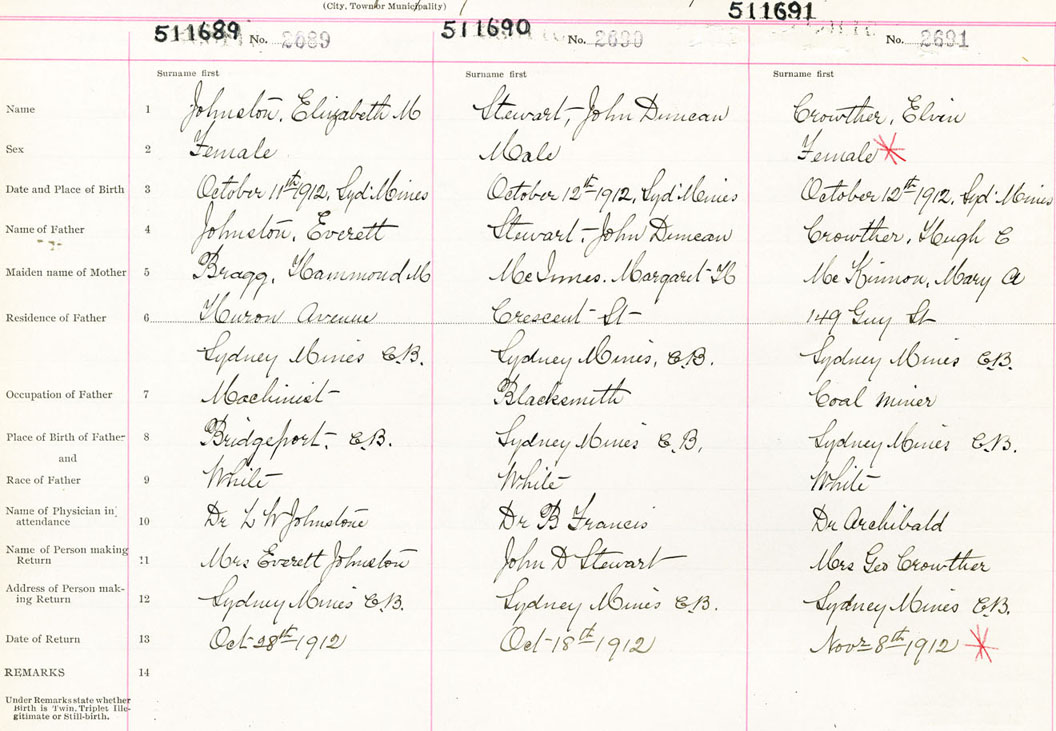 (City, Town or Municipality)
511689 No. 2689 511690 No. 2690 511691 No. 2691
Surname first Surname first Surname first
Name 1 Johnston, Elizabeth M Stewart, John Duncan Crowther, Elvin
Sex 2 Female Male Female
Date and Place of Birth 3 October 11th 1912, Syd Mines October 12th 1912, Syd Mines October 12th 1912, Syd Mines
Name of Father 4 Johnston, Everett Stewart, John Duncan Crowther, Hugh C
Maiden name of Mother 5 Bragg, Hammond M McInnes, Margaret H McKinnon, Mary A
Residence of Father 6 Huron Avenue Crescent St 149 Guy St
Sydney Mines C.B. Sydney Mines, C.B. Sydney Mines C.B.
Occupation of Father 7 Machinist Blacksmith Coal Miner
Place of Birth of Father 8 Bridgeport, C.B. Sydney Mines C.B, Sydney Mines C.B.
and
Race of Father 9 White White White
Name of Physician in
attendance 10 Dr L W Johnstone Dr B Francis Dr Archibald
Name of Person making
Return 11 Mrs Everett Johnston John D Stewart Mrs Geo Crowther
Address of Person mak-
ing Return 12 Sydney Mines C.B. Sydney Mines C.B. Sydney Mines C.B.
Date of Return 13 Oct 28th 1912 Oct 18th 1912 Novr 8th 1912
REMARKS 14
Under Remarks state whether
Birth is Twin, Triplet Ille-
gitimate or Still-birth.